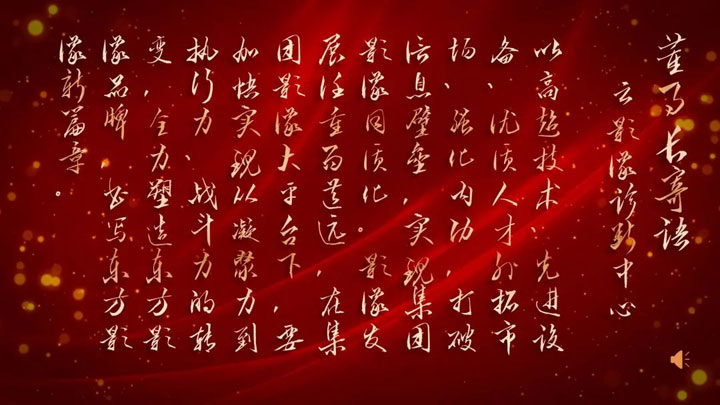 董事长寄语
云影像诊断中心
以高超技术、先进设
备、优质人才外拓市
场、强化内功，打破
信息壁垒，实现集团
影像同质化。影像发
展任重而道远，在集
团影像大平台下，要
加快实现从凝聚力到
执行力、战斗力的转
变，全力塑造东方影
像品牌 书写东方影
像新篇章。